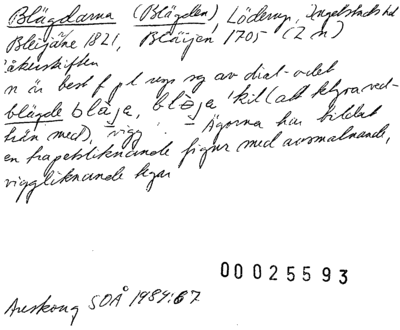 Blägdarna (Blägden), Löderup, Ingelstads hd
Bleijärne 1821, Bläijen 1705 (2 n)
åkerskiften
n är best f pl resp sg av dial-ordet
blägde blåja, blèja 'kil (att klyva ved-
trän med), vigg'. – Ägorna har bildat
en trapetsliknande figur med avsmalnande,
viggliknande tegar
00025593
Areskoug SOÅ 1984:67